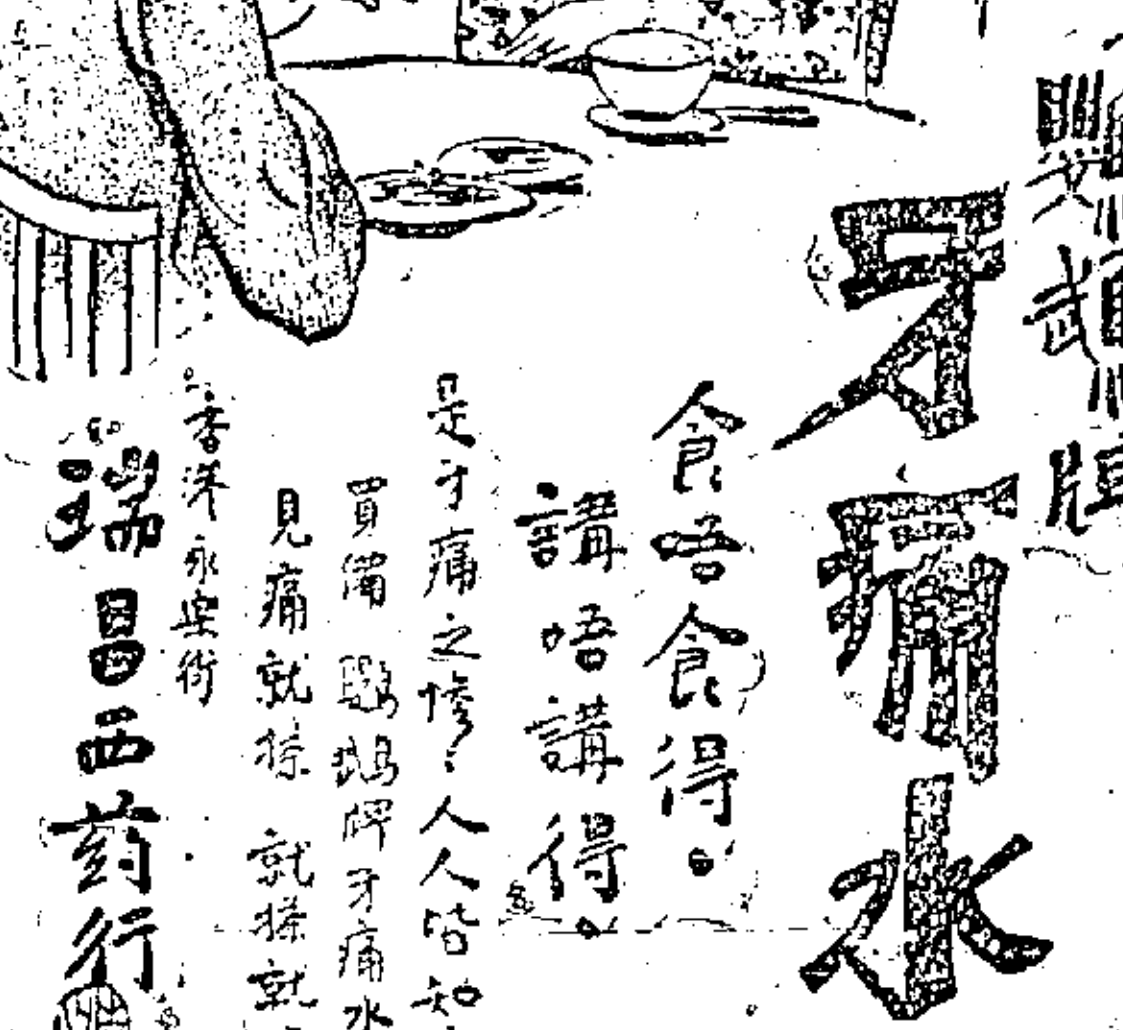 鸚鵡牌
牙痛水
食唔食得。
講唔講得。
是牙痛之慘人人皆知
買備鸚鵡牌牙痛水
見痛就搽 就搽就
香洋永樂街
瑞昌西药行